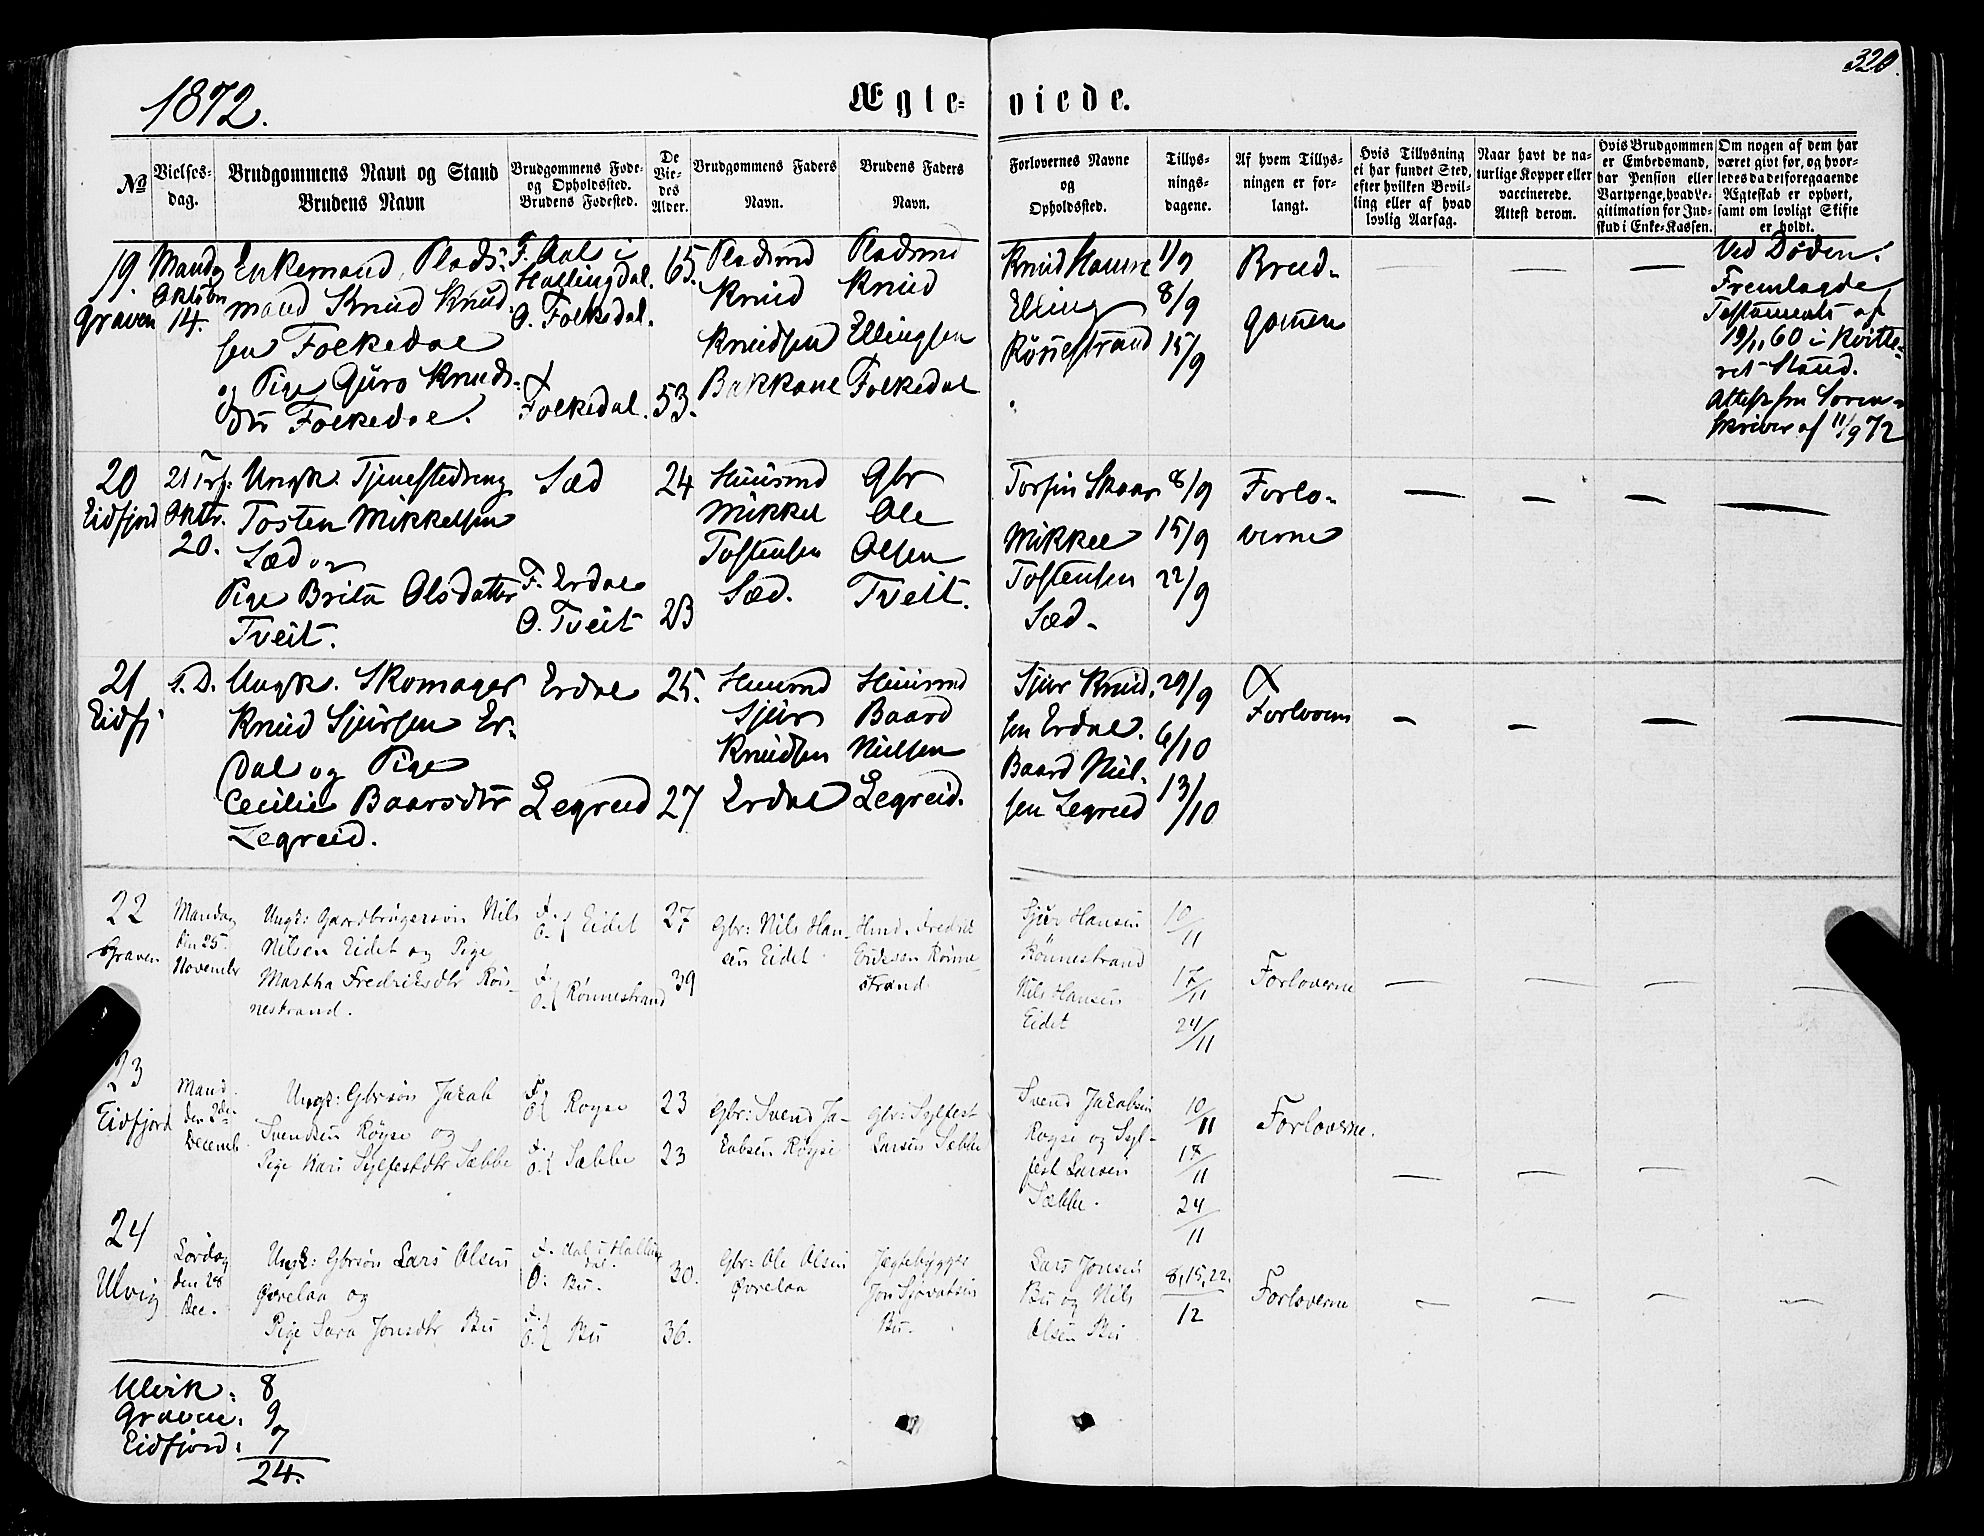 320.
1872.
Ægte-viede.
No
Vielses-
dag.
Brudgommens Navn og Stand
Brudens Navn
Brudgommens Føde-
og Opholdssted.
Brudens Fødested.
De
Vie-
des
Alder.
Brudgommens Faders
Navn.
Brudens Faders
Navn.
Forlovernes Navne
og
Opholdssted.
Tillys-
nings-
dagene.
Af hvem Tillys-
ningen er for-
langt.
Hvis Tillysning
ei har fundet Sted,
efter hvilken Bevil-
ling eller af hvad
lovlig Aarsag.
Naar havt de na-
turlige Kopper eller
vaccinerede.
Attest derom.
Hvis Brudgommen
er Embedsmand,
har Pension eller
Vartpenge, hvad Le-
gitimation for Ind-
skud i Enke-Kassen.
Om nogen af dem har
været givt før, og hvor-
ledes da det foregaaende
Ægteskab er ophørt,
samt om lovligt Skifte
er holdt.
19.
Graven
Mandg
Oktober
14.
Enkemand, Plads-
mand Knud Knud-
sen Folkedal
og Pige Guro Knuds-
dtr Folkedal.
F. Aal i
Hallingdal.
O. Folkedal.
Folkedal.
65.
53.
Pladsmd
Knud
Knudsen
Bakkane
Pladsmd
Knud
Ellingsen
Folkedal
Knud Hamre
Elling
Rønnestrand
1/9
8/9
15/9
Brud-
gomen
Ved Døden.
Fremlagde
Testament af
19/1 60 i kvitte-
ret Stand.
Attest fra Soren-
skriver af 11/9 72
20
Eidfjord
21 Trf:
Oktbr.
20.
Ungk. Tjenestedreng
Tosten Mikkelsen
Sæd og
Pige Brita Olsdatter
Tveit.
Sæd
F. Erdal
O. Tveit
24
23
Huusmd
Mikkel
Tostensen
Sæd.
Gbr
Ole
Olsen
Tveit.
Torfin Skaar
Mikkel
Tostensen
Sæd.
8/9
15/9
22/9
Forlo-
verne
21
Eidfj
s. D.
Ungk. Skomager
Knud Sjursen Er-
dal og Pige
Cecilie Baarsdtr
Legreid.
Erdal
Legreid
25.
27
Huusmd
Sjur
Knudsen
Erdal
Huusmd
Baard
Nielsen
Legreid.
Sjur Knud-
sen Erdal.
Baard Niel-
sen Legreid
29/9
6/10
13/10
Forlovern
22
Graven
Mandag
den 25
November
Ungk: Gaardbrugersøn Nils
Nilsen Eidet og Pige
Martha Fredriksdtr Røn-
nestrand.
F.
O. { Eidet
F.
O. { Rønnestrand
27
39
Gbr: Nils Han-
sen Eidet
Hmd. Fredrik
Eriksen Rønne-
strand.
Sjur Hansen
Rønnestrand
Nils Hansen
Eidet
10/11
17/11
24/11
Forloverne
23
Eidfjord
Mand.
den 2den
Decemb.
Ungk: Gbrsøn Jakob
Svendsen Røgse og
Pige Kari Sylfestdtr Sæbbe
F.
O. { Rogse
F.
O. { Sæbbe
23
23
Gbr: Svend Ja-
kobsen Røgse
Gbr: Sylfest
Larsen Sæbbe
Svend Jakobsen
Rogse og Syl-
fest Larsen
Sæbbe.
10/11
17/11
24/11
Forloverne.
24
Ulvig
Lørdag
den 28
Dec.
Ungk: Gbrsøn Lars Olsen
Øvrelaa og
Pige Sara Jonsdtr Bu
F. Aal i Halling
dal.
O: Bu.
F.
O. { Bu
30.
36.
Gbr: Ole Olsen
Øvrelaa
Jægtebygger
Jon Sjovatsen
Bu.
Lars Jonsen
Bu og Nils
Olsen Bu
8, 15, 22.
12
Forloverne
Ulvik: 8
Graven: 9
Eidfjord: 7
24.